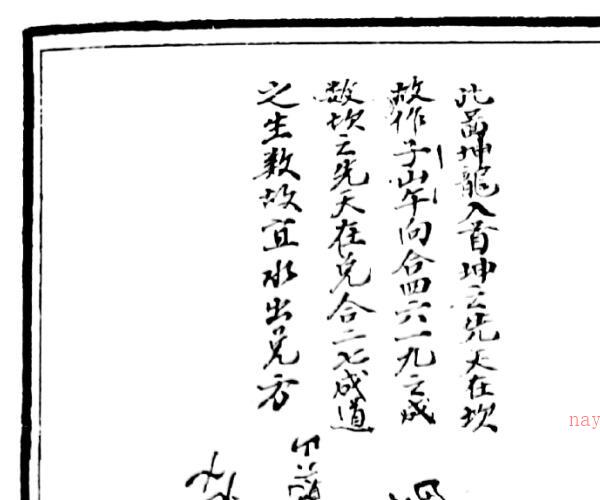 此局坤龍入首坤之先天在坎
故作子山午向合四六一九之成
数坎之先天在兑合二七成道
之生数故宜水出兑方
甲
nay